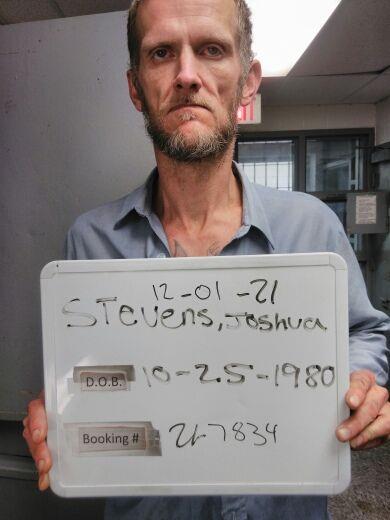 12-01-21
Stevens, Joshua
D.O.B. 10-25-1980
Booking # 21-7834